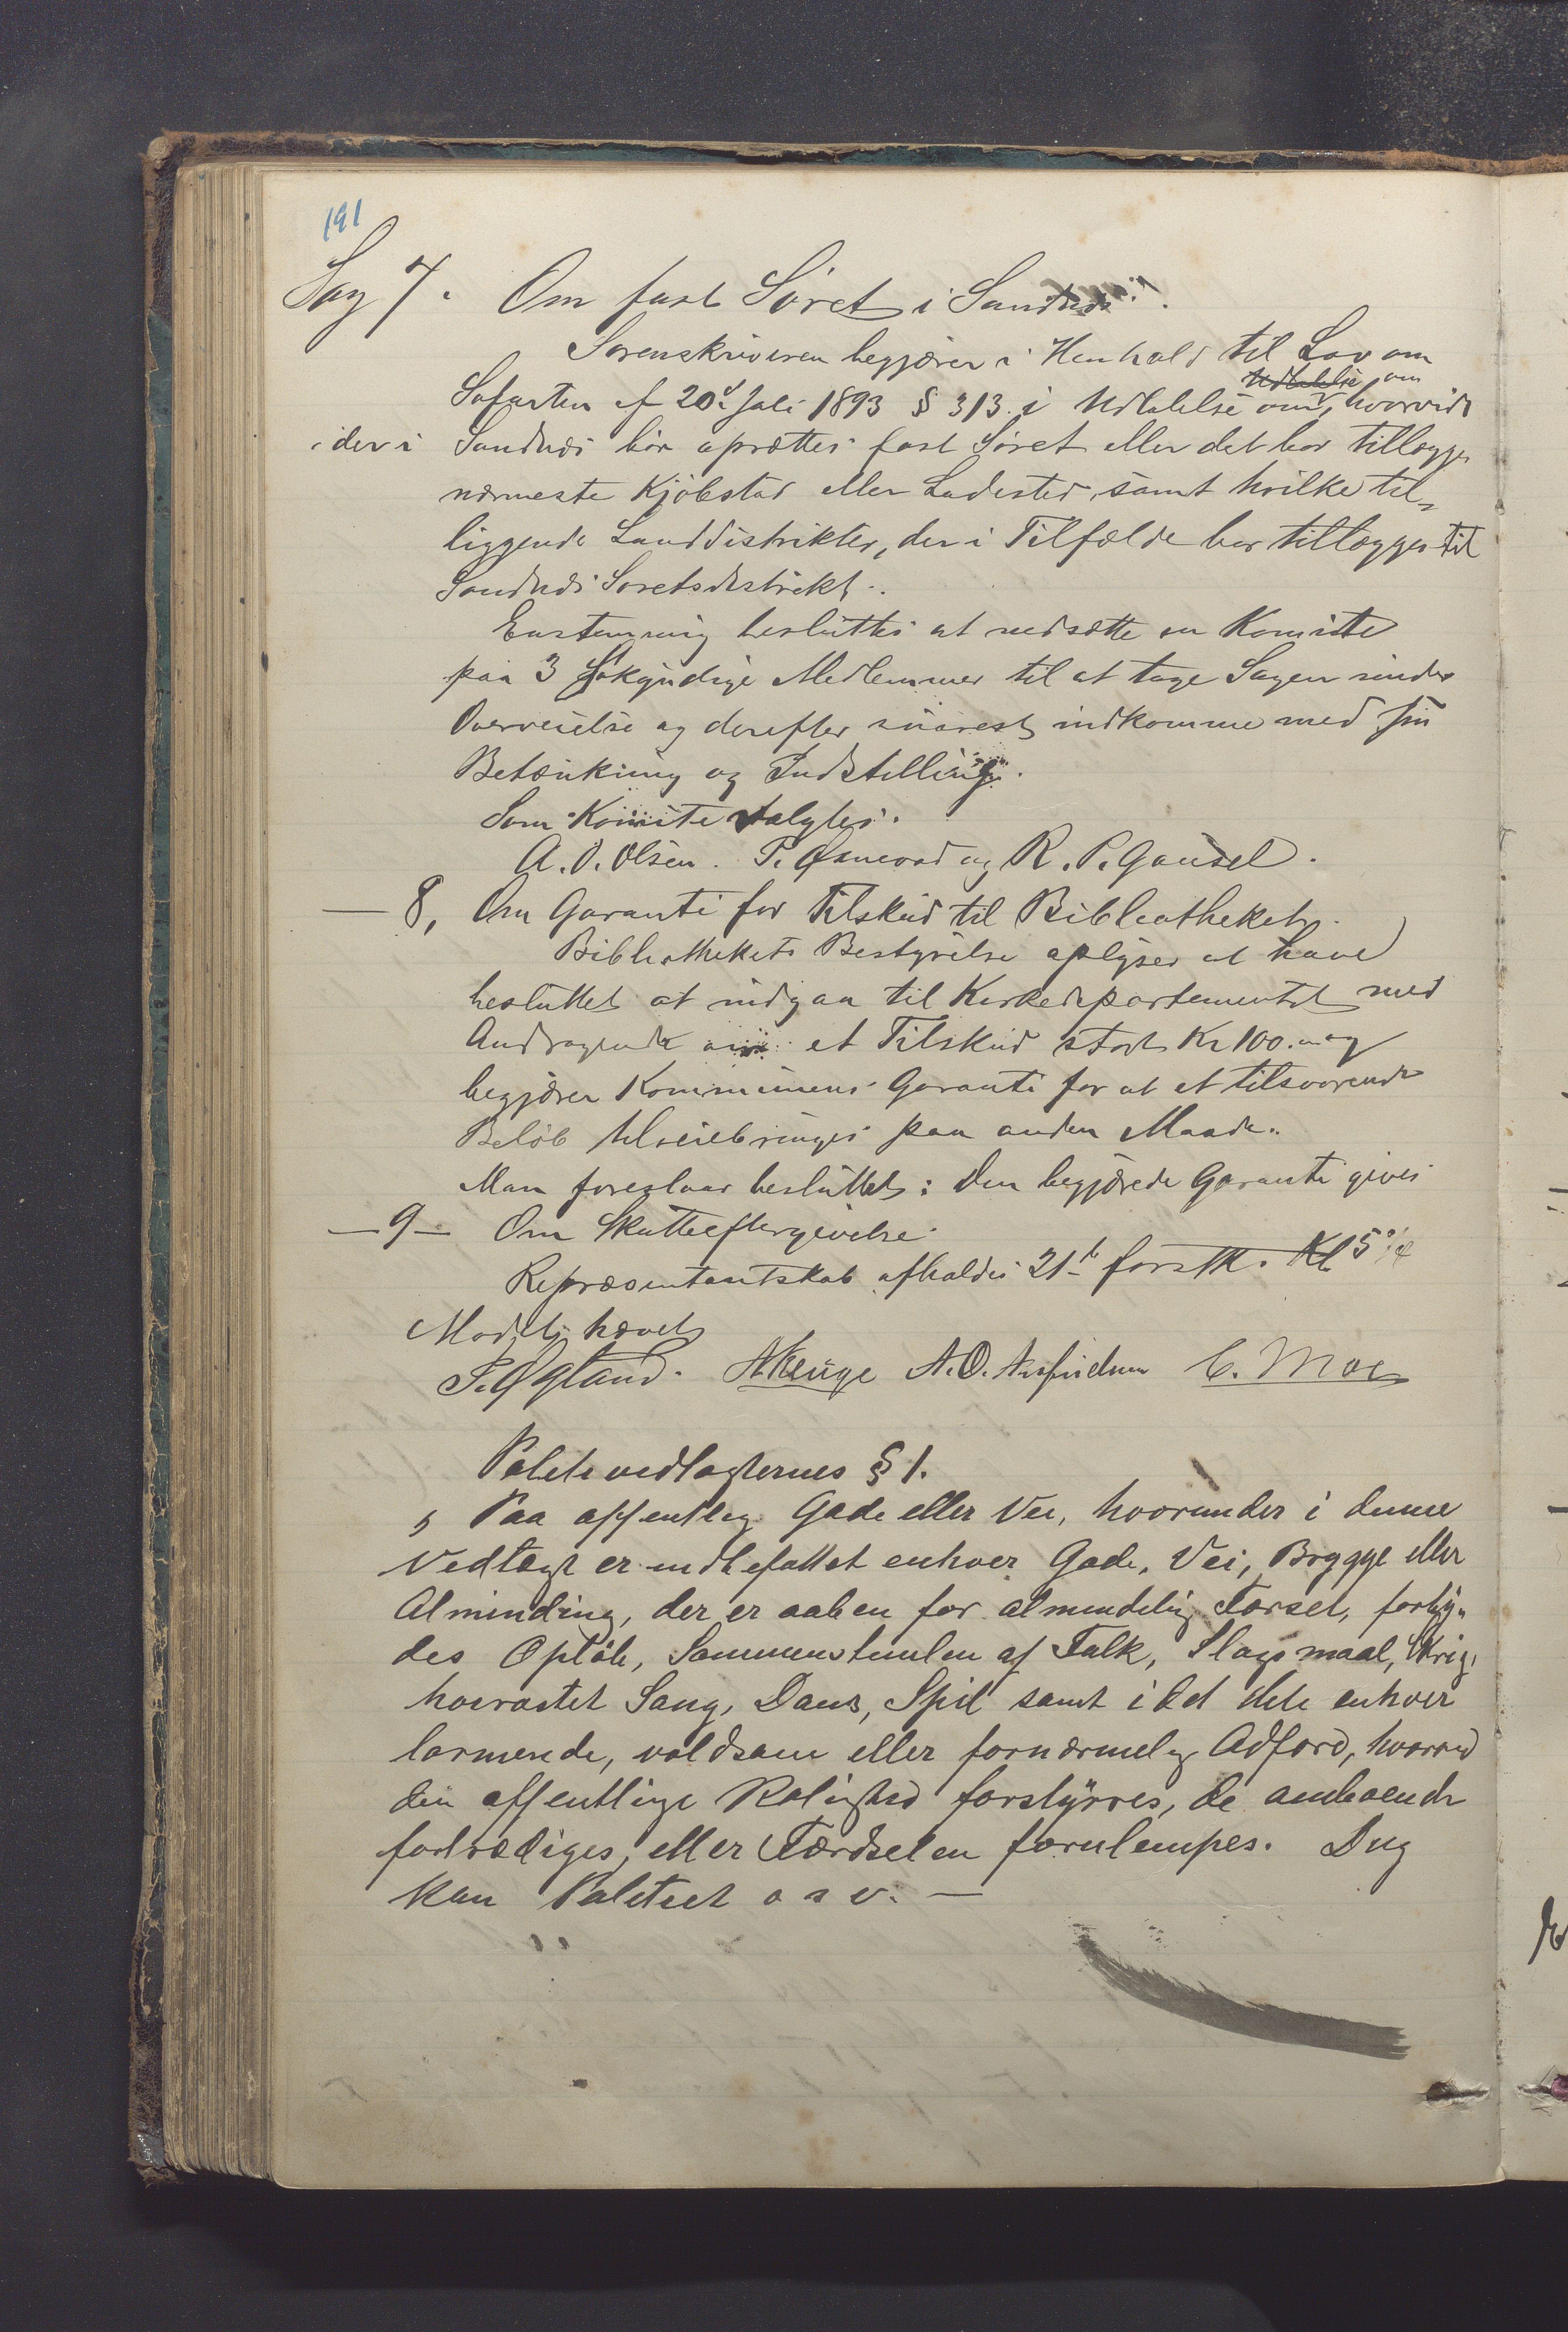 191
Sag 7. Om fast Söret i Sandnes.
Sorenskriveren begjærer i Henhold til Lov om
Udtalelse om
Søfarten af 20de Juli 1893 § 313 i Udtalelse om, hvorvidt
der i Sandnes bör oprættes fast Söret eller det bör tillægges
nærmeste Kjöbstad eller Ladested, samt hvilke til-
liggende Landdistrikter, der i Tilfælde bør tillægges til
Sandnes Søretsdistrikt.
Enstemmig besluttes at nedsætte en Komite
paa 3 Søkyndige Medlemmer til at tage Sagen under
Overveielse og derefter snarest indkomme med sin
Betænkning og Indstilling.
Som Komite valgtes.
A. O. Olsen. T. og R. P. Gausel.
— 8, Om Garanti for Tilskud til Bibliotheket.
Bibliothekets Bestyrelse oplyser at have
besluttet at indgaa til Kirkedepartementet med
Andragende om et Tilskud stort Kr 100. og
begjærer Kommunens Garanti for at et tilsvarende
Beløb tilveiebringes paa anden Maade.
Man foreslaar besluttet: Den begjærede Garanti gives
— 9 — Om Skatteeftergivelse.
Repræsentantskab afholdes 21de Kl 5
Mödet hævet
S. Øgland. A. O. C. Moe
Politivedtægternes § 1.
„ Paa offentlig Gade eller Vei, hvorunder i denne
Vedtægt er indbefattet enhver Gade, Vei, Brygge eller
Alminding, der er aaben for almindelig Færsel, forby-
des Opløb, Sammenstimlen af Folk, Slagsmaal, Skrig,
høirøstet Sang, Dans, Spil samt i det hele enhver
larmende, voldsom eller fornærmelig Adfærd, hvorved
den offentlige Rolighed forstyrres, de omboende
foruleiliges, eller Færdselen forulempes. Dog
kan Politiet o s v. —